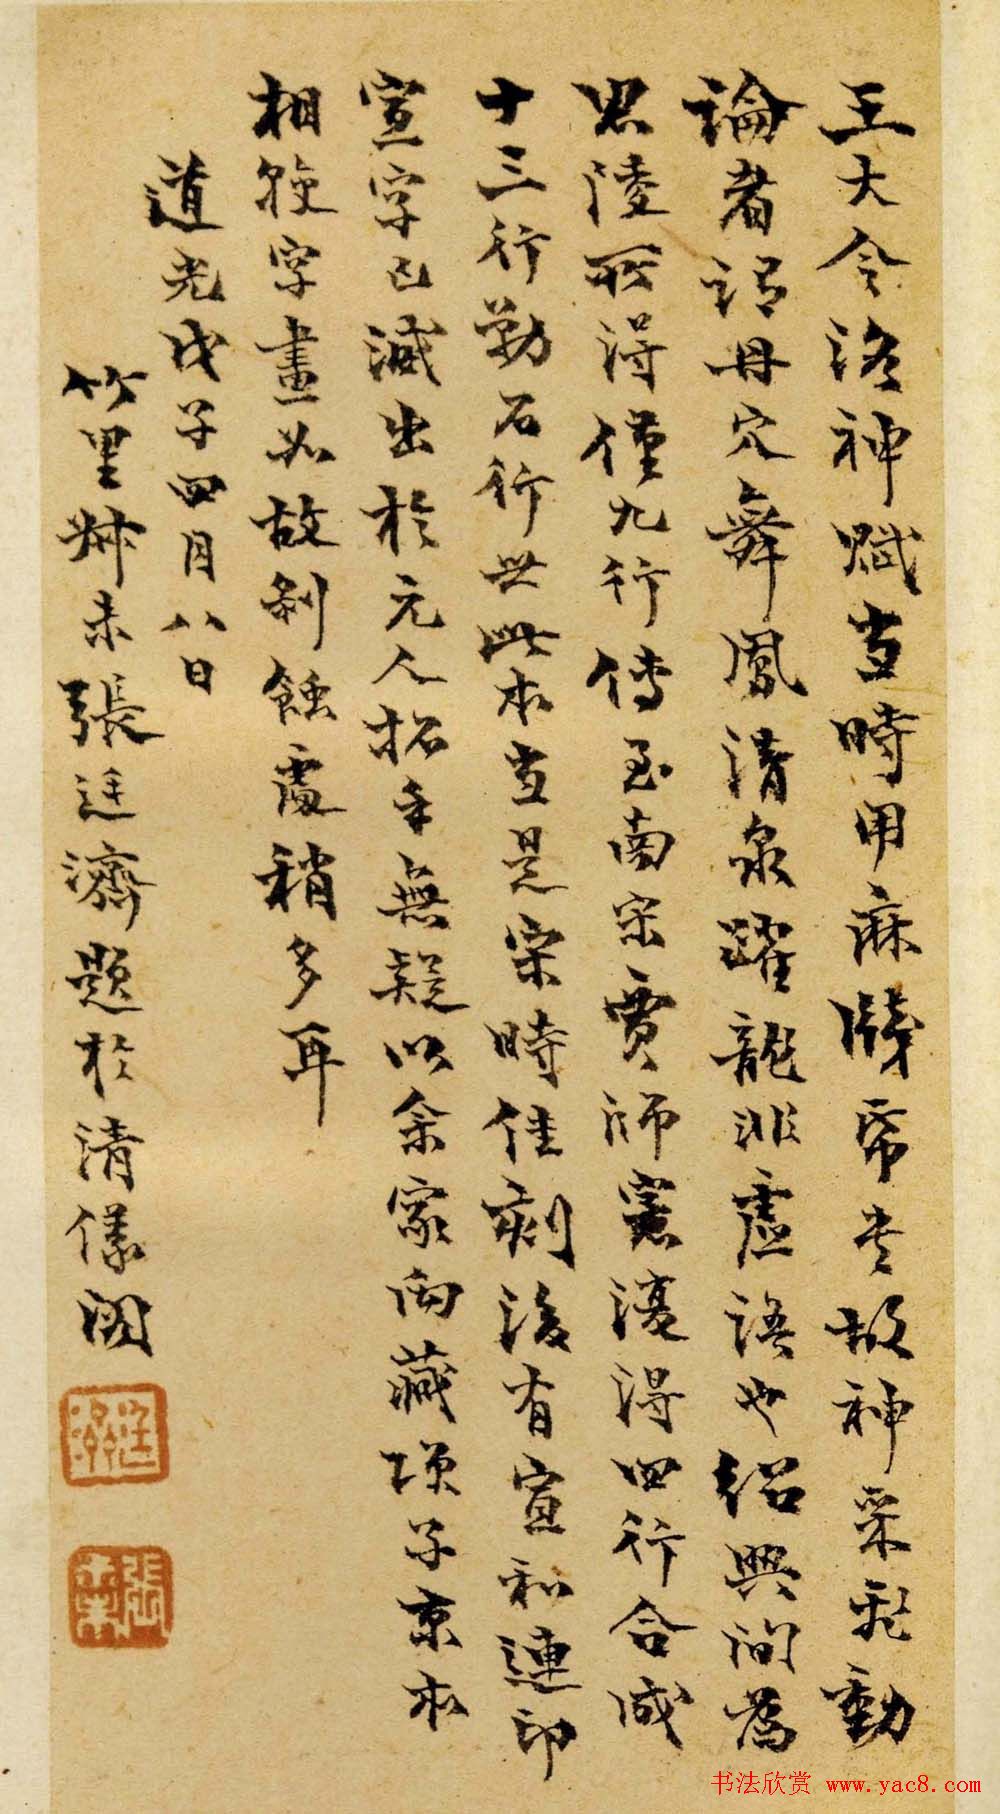 王大令洛神賦當時用麻牋帋書故神采飛動
論者謂丹穴舞鳳清泉躍龍非虛語也紹興間為
思陵所得僅九行傳至南宋賈師憲復得四行合成
十三行勒石行世此本當是宋時佳刻後有宣和連印
宣字已減出於元人拓手無疑以余家向藏項子京本
相較字畫如故剝蝕處稍多耳
道光戊子四月八日
竹里叔未張廷濟題於清儀閣
廷濟
張叔未
书法欣赏 www.yac8.com